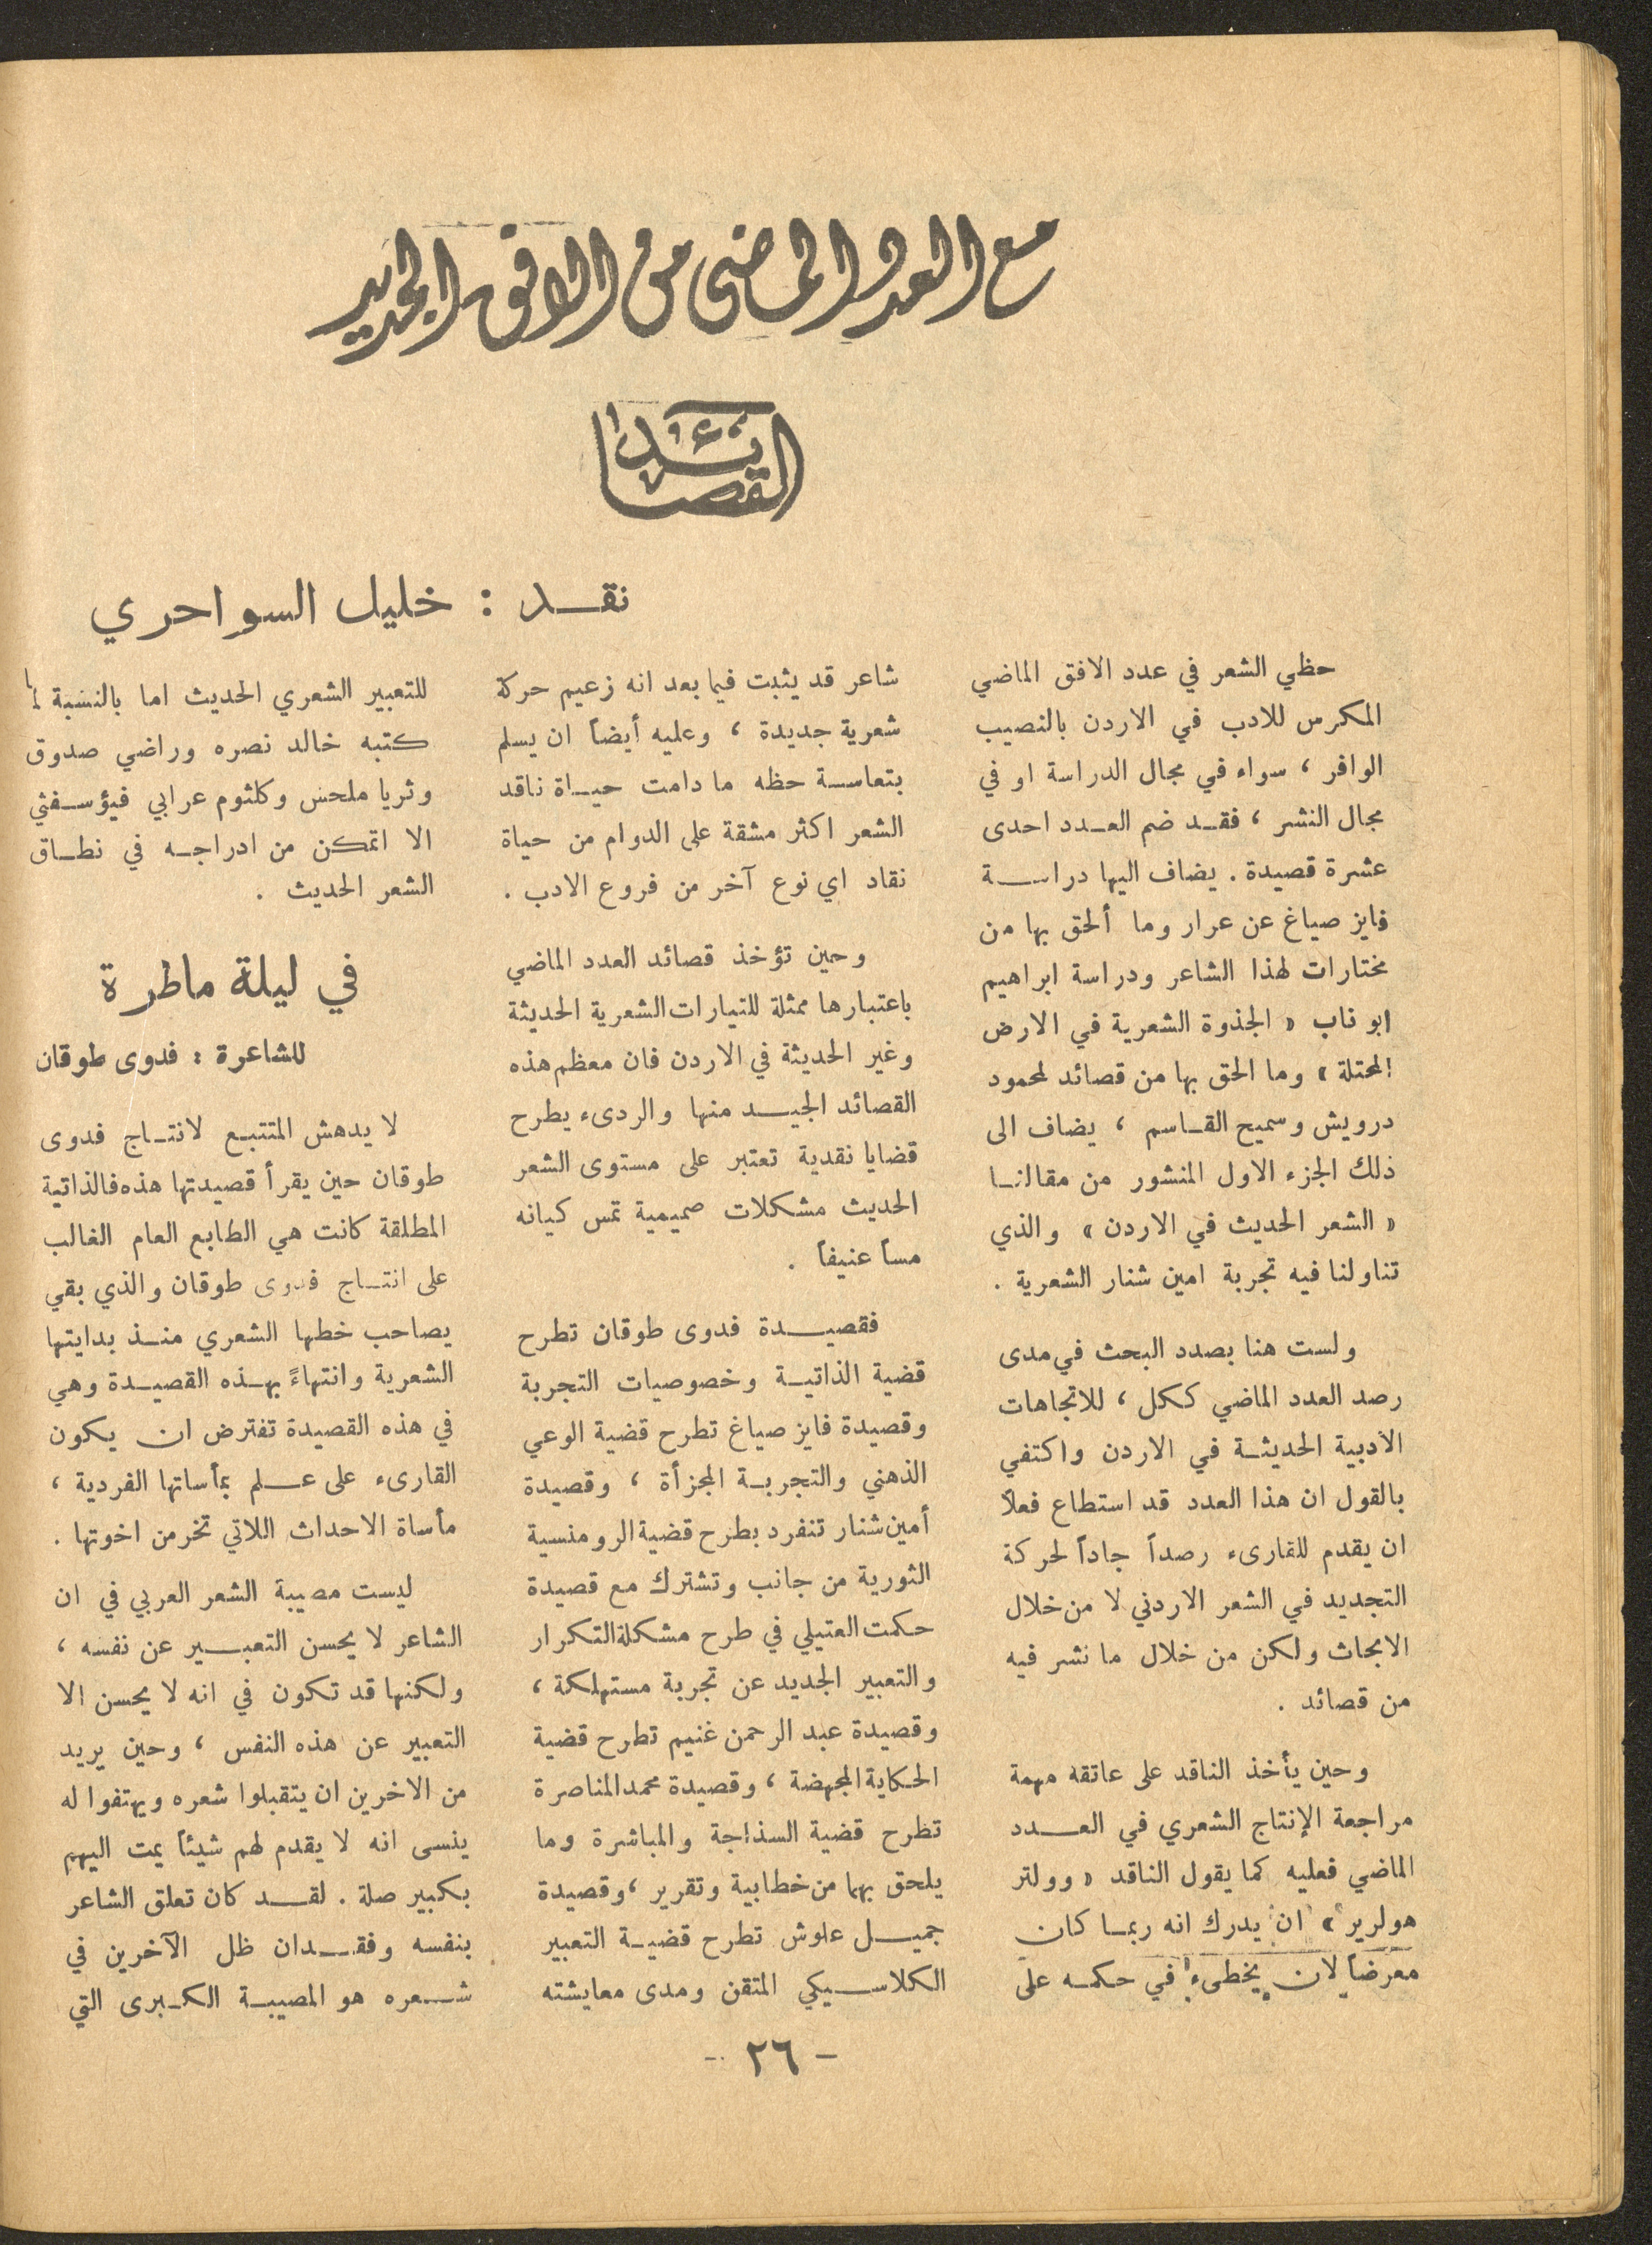 مع العدد الماضي من الافق الجديد
القصائد
نقد : خليل السواحري
حظي الشعر في عدد الافق الماضي
المكرس للادب في الاردن بالنصيب
الوافر ، سواء في مجال الدراسة او في
مجال النشر ، فقد ضم العدد احدى
عشرة قصيدة . يضاف اليها دراسة
فايز صياغ عن عرار وما ألحق بها من
مختارات لهذا الشاعر ودراسة ابراهيم
ابو ناب « الجذوة الشعرية في الارض
المحتلة » وما الحق بها من قصائد لمحمود
درويش وسميح القاسم ، يضاف الى
ذلك الجزء الاول المنشور من مقالنا
« الشعر الحديث في الاردن » والذي
تناولنا فيه تجربة امين شنار الشعرية .
ولست هنا بصدد البحث في مدى
رصد العدد الماضي ككل ، للاتجاهات
الأدبية الحديثة في الاردن واكتفي
بالقول ان هذا العدد قد استطاع فعلاً
ان يقدم للقارىء رصداً جاداً لحركة
التجديد في الشعر الاردني لا من خلال
الابحاث ولكن من خلال ما نشر فيه
من قصائد .
وحين يأخذ الناقد على عاتقه مهمة
مراجعة الإنتاج الشعري في العدد
الماضي فعليه كما يقول الناقد « وولتر
هولرير » ان يدرك انه ربما كان
معرضاً لان يخطىء في حكمه على
شاعر قد يثبت فيما بعد انه زعيم حركة
شعرية جديدة ، وعليه أيضاً ان يسلم
بتعاسة حظه ما دامت حياة ناقد
الشعر اكثر مشقة على الدوام من حياة
نقاد اي نوع آخر من فروع الادب .
وحين تؤخذ قصائد العدد الماضي
باعتبارها ممثلة للتيارات الشعرية الحديثة
وغير الحديثة في الاردن فان معظم هذه
القصائد الجيد منها والردىء يطرح
قضايا نقدية تعتبر على مستوى الشعر
الحديث مشكلات صميمية تمس كيانه
مساً عنيفاً .
فقصيدة فدوى طوقان تطرح
قضية الذاتية وخصوصيات التجربة
وقصيدة فايز صياغ تطرح قضية الوعي
الذهني والتجربة المجزأة ، وقصيدة
أمين شنار تنفرد بطرح قضية الرومنسية
الثورية من جانب وتشترك مع قصيدة
حكمت العتيلي في طرح مشكلة التكرار
والتعبير الجديد عن تجربة مستهلكة ،
وقصيدة عبد الرحمن غنيم تطرح قضية
الحكاية المجهضة ، وقصيدة محمد المناصرة
تطرح قضية السذاجة والمباشرة وما
يلحق بهما من خطابية وتقرير ، وقصيدة
جميل علوش تطرح قضية التعبير
الكلاسيكي المتقن ومدى معايشته
للتعبير الشعري الحديث اما بالنسبة لما
كتبه خالد نصره وراضي صدوق
وثريا ملحس وكلثوم عرابي فيؤسفني
الا اتمكن من ادراجه في نطاق
الشعر الحديث .
في ليلة ماطرة
للشاعرة : فدوى طوقان
لا يدهش المتتبع لانتاج فدوى
طوقان حين يقرأ قصيدتها هذه فالذاتية
المطلقة كانت هي الطابع العام الغالب
على انتاج فدوى طوقان والذي بقي
يصاحب خطها الشعري منذ بدايتها
الشعرية وانتهاءً بهذه القصيدة وهي
في هذه القصيدة تفترض ان يكون
القارىء على علم بمأساتها الفردية ،
مأساة الاحداث اللاتي تخرمن اخوتها .
ليست مصيبة الشعر العربي في ان
الشاعر لا يحسن التعبير عن نفسه ،
ولكنها قد تكون في انه لا يحسن الا
التعبير عن هذه النفس ، وحين يريد
من الاخرين ان يتقبلوا شعره ويهتفوا له
ينسى انه لا يقدم لهم شيئاً يمت اليهم
بكبير صلة . لقد كان تعلق الشاعر
بنفسه وفقدان ظل الآخرين في
شعره هو المصيبة الكبرى التي
- ٢٦ -